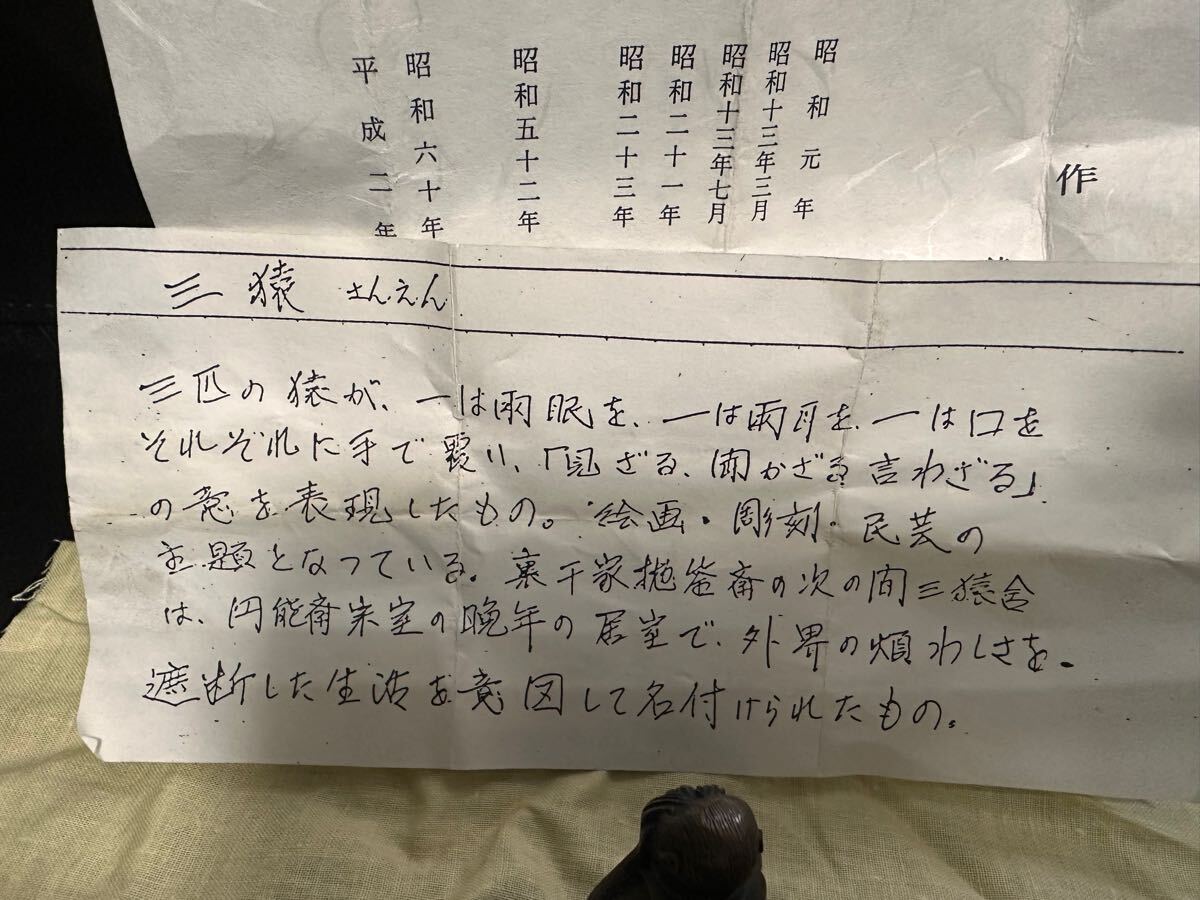 作
昭和元年
昭和十三年三月
昭和十三年七月
昭和二十一年
昭和二十三年
昭和五十二年
昭和六十年
平成二年
三猿 さんえん
三匹の猿が、一は両眼を、一は両耳を、一は口を
それぞれに手で覆い、「見ざる、聞かざる 言わざる」
の意を表現したもの。絵画・彫刻・民芸の
主題となっている。裏千家抛筌斎の次の間三猿舎
は、円能斎宗室の晩年の居室で、外界の煩わしさを
遮断した生活を意図して名付けられたもの。